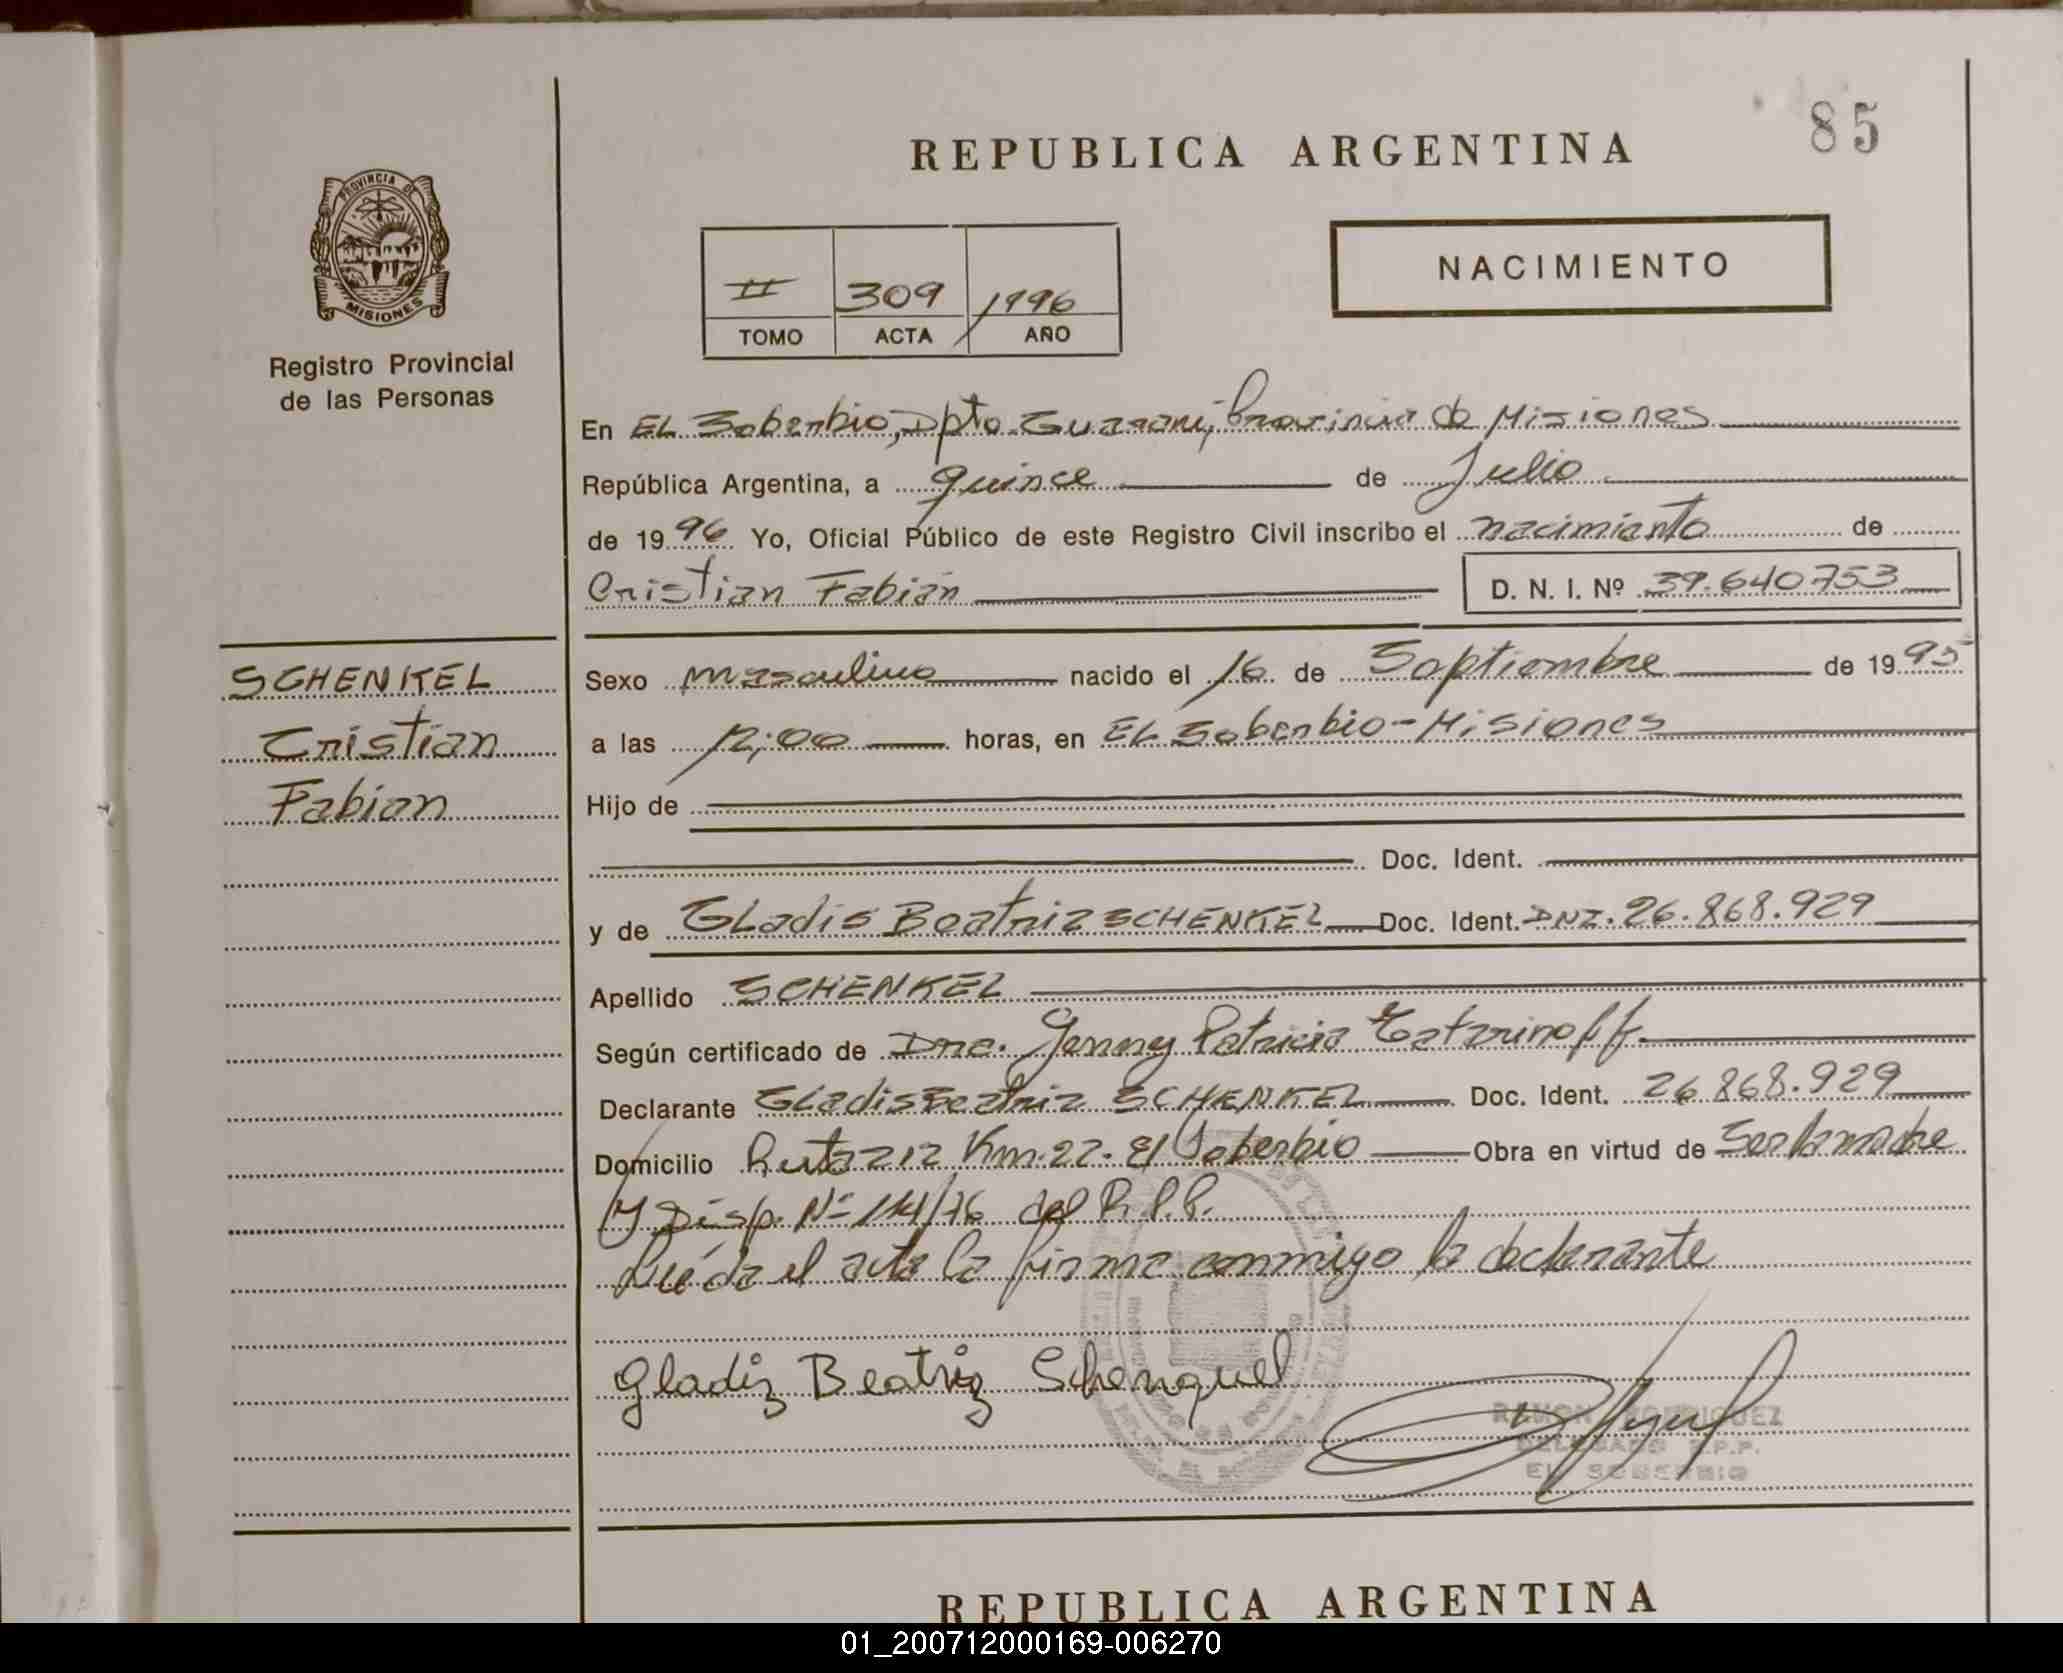 85
REPUBLICA ARGENTINA
PROVINCIA DE
MISIONES
NACIMIENTO
II 309 1996
TOMO ACTA AÑO
Registro Provincial
de las Personas
En EL Soberbio, Dpto. Guarani, Provincia de Misiones
República Argentina, a quince de Julio
de 1996 Yo, Oficial Público de este Registro Civil inscribo el nacimiento de
Cristian Fabián D. N. I. Nº 39.640.753
SCHENKEL
Cristian
Fabian
Sexo masculino nacido el 16 de Septiembre de 1995
a las 12:00 horas, en EL Soberbio - Misiones
Hijo de
Doc. Ident.
y de GLadis Beatriz SCHENKEL Doc. Ident. DNI. 26.868.929
Apellido SCHENKEL
Según certificado de Dra. Jenny Patricia Tatarinoff
Declarante GLadis Beatriz SCHENKEL Doc. Ident. 26.868.929
Domicilio Ruta 212 Km. 22. El Soberbio Obra en virtud de Ser la madre
y Disp. Nº 114/76 del R.P.P.
Leída el acta la firma conmigo la declarante
Gladiz Beatriz Schenquel
RAMON RODRIGUEZ
DELEGADO R.P.P.
EL SOBERBIO
REPUBLICA ARGENTINA
01_200712000169-006270